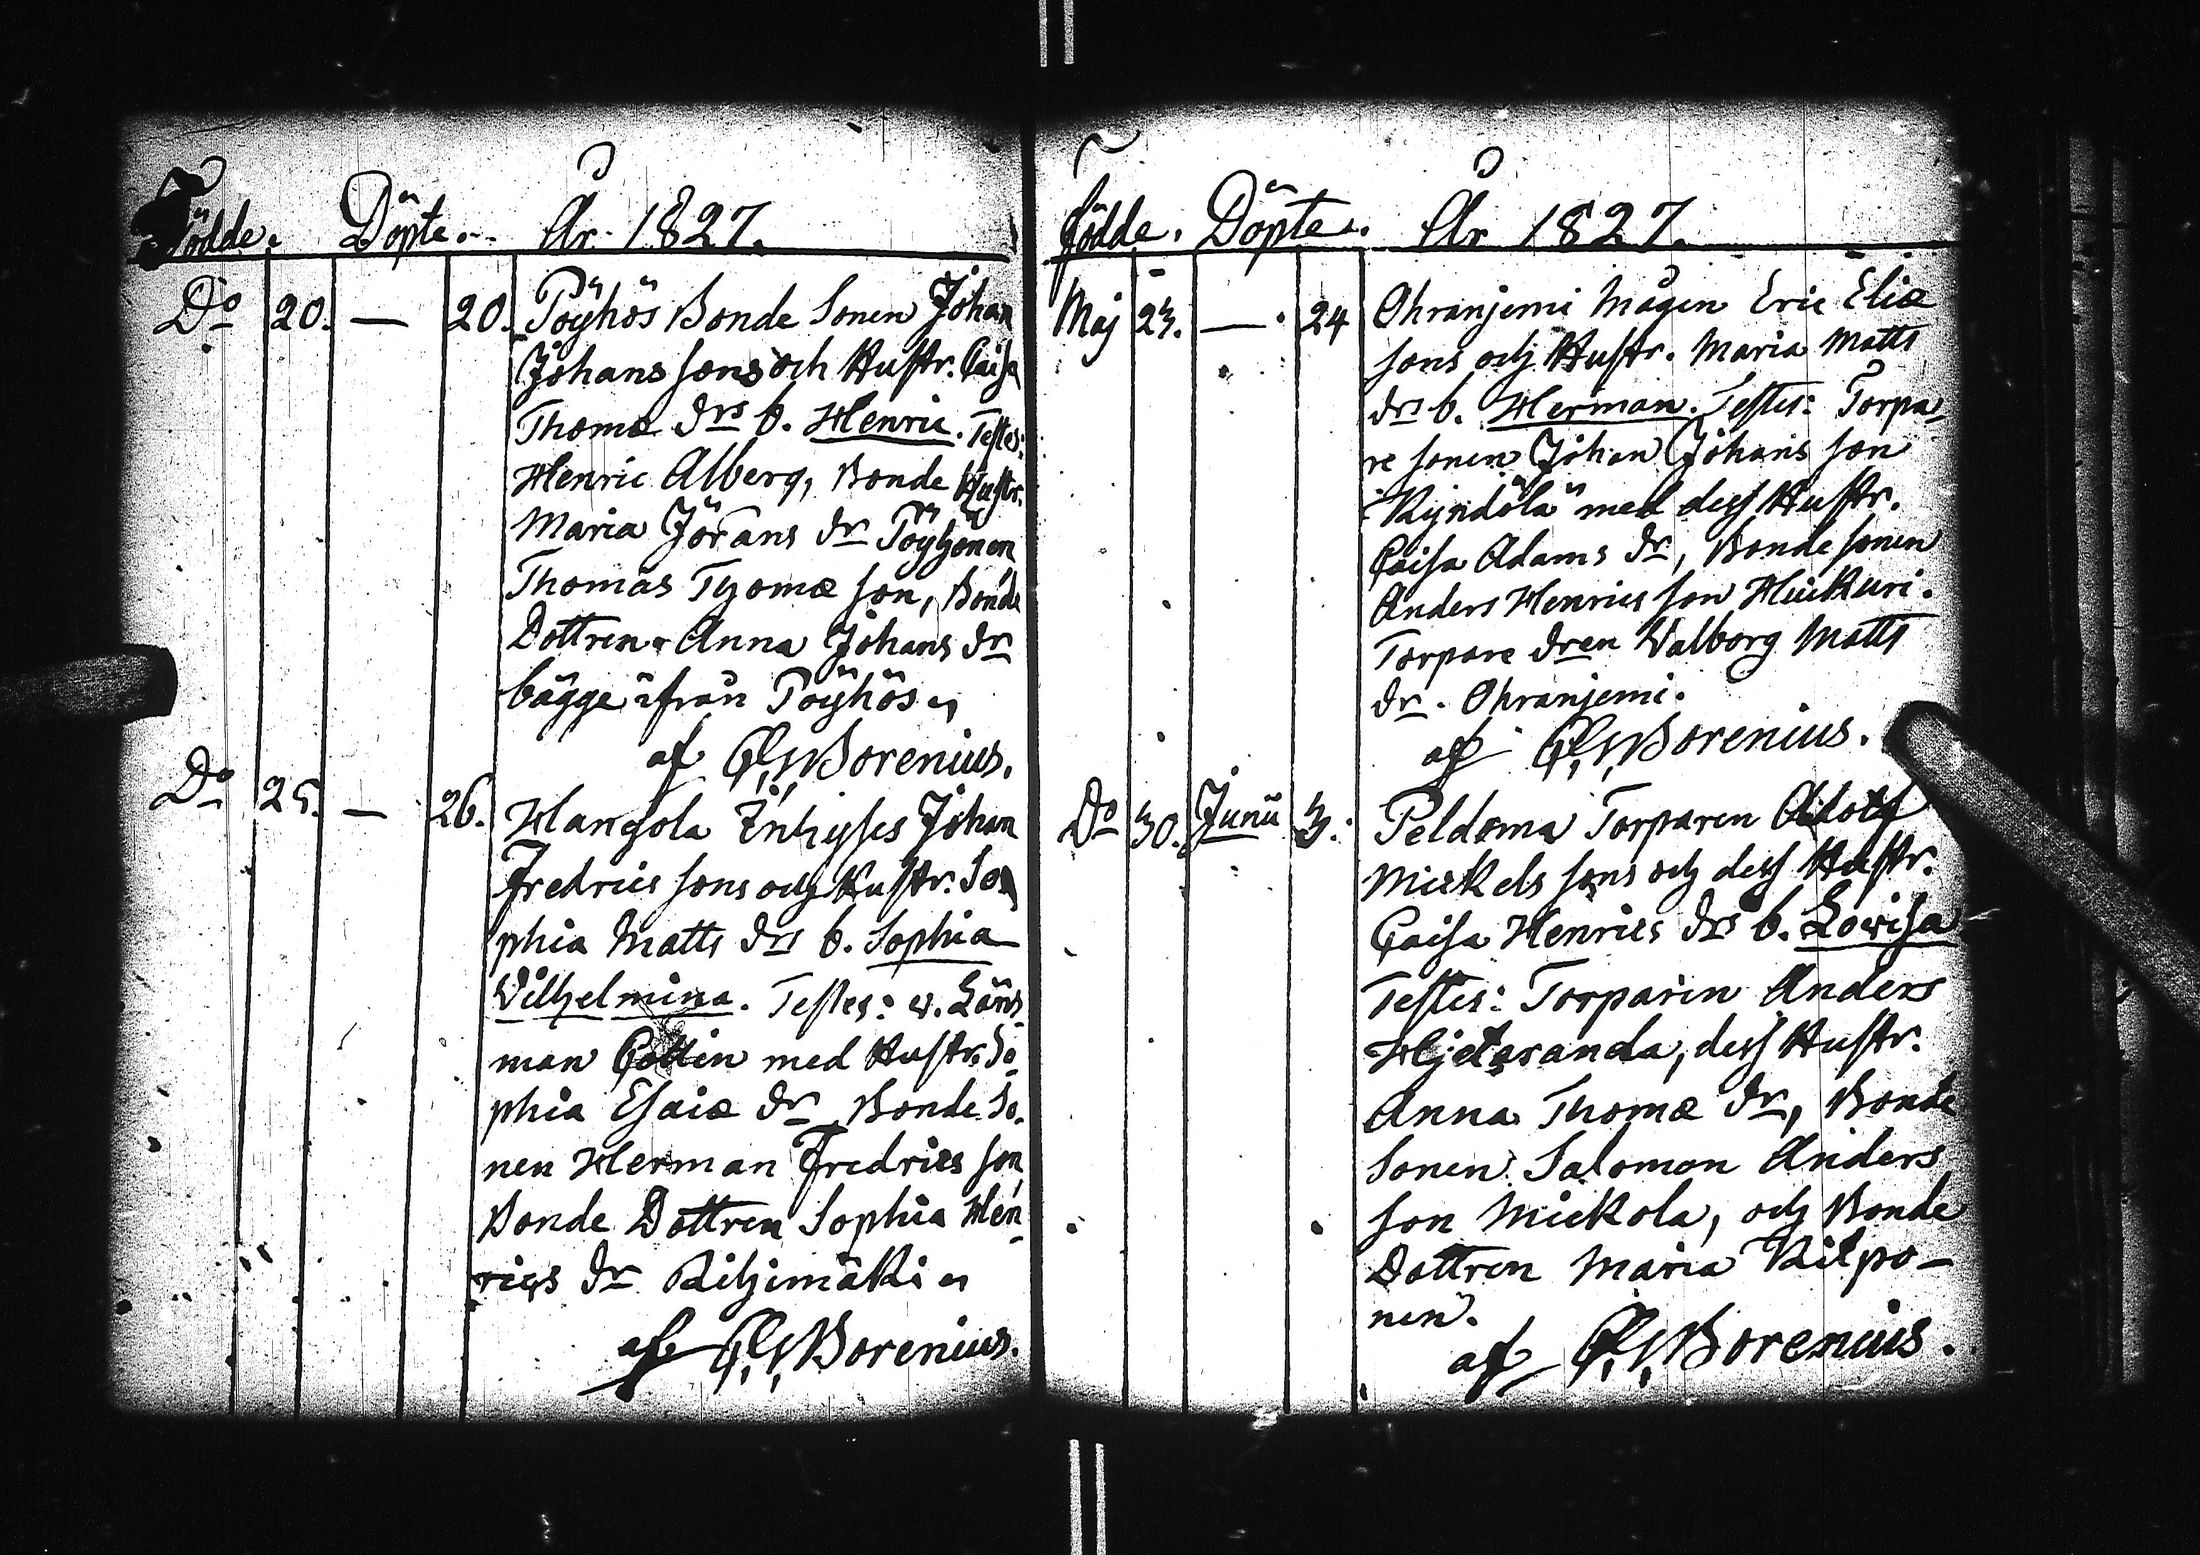 Födde. Döpte. År 1827.
Do 20. — 20. Pöyhös Bonde Sonen Johan
Johans sons och Hustr. Caisa
Thomæ drs b. Henric. Testes:
Henric Alberg, Bonde Hustr.
Maria Jörans dr Pöyhönen
Thomas Thomæ son, Bonde
Dottren Anna Johans dr
bägge ifrån Pöyhös
af Borenius.
Do 25. — 26. Hangola Inhyses Johan
Fredrics sons och Hustr. So
phia Matts drs b. Sophia
Wilhelmina. Testes: v. Läns
man Gottin med Hustr. So
phia Esaiæ dr, Bonde So-
nen Herman Fredrics son
Bonde Dottren Sophia Hen
rics dr Rihimäki
af Borenius.
Födde. Döpte. År 1827.
Maj 23. — 24 Ohranjemi Mågen Eric Eliæ
sons och Hustr. Maria Matts
drs b. Herman. Testes: Torpa
re sonen Johan Johans son
Kyndölä med dess Hustr.
Caisa Adams dr, Bonde sonen
Anders Henrics son Heickuri.
Torpare dren Walborg Matts
dr. Ohranjemi.
af Borenius.
Do 30. Junii 3. Peldoma Torparen Adolf
Mickels sons och dess Hustr.
Caisa Henrics drs b. Lowisa
Testes: Torparen Anders
Hjetaranda, dess Hustr.
Anna Thomæ dr, Bonde
Sonen Salomon Anders
son Mickola, och Bonde
Dottren Maria Kilpo-
nen.
af Borenius.